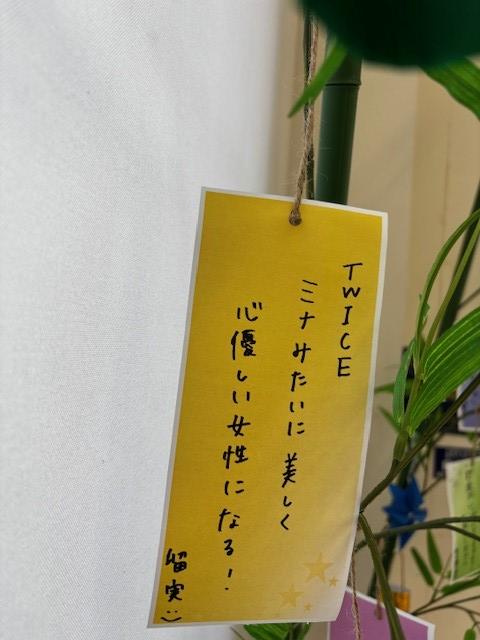 TWICE
ミナみたいに美しく
心優しい女性になる!
留実:)